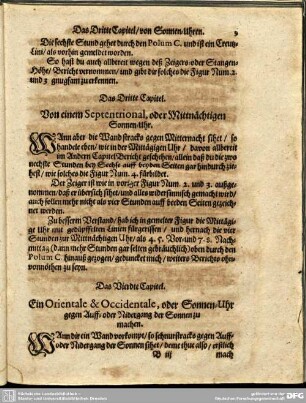 Das Dritte Capitel/ von Sonnen-Uhren. 9
Die sechste Stund gehet durch den Polum C. und ist ein Creutz-
Lini/ als vorhin gemeldet worden.
So hast du auch allbereit wegen deß Zeigers oder Stangen-
Höhe/ Bericht vernommen/ und gibt dir solches die Figur Num. 2.
und 3 gnugsam zu erkennen.
Das Dritte Capitel.
Von einem Septentrional, oder Mittnächtigen
Sonnen-Uhr.
WAnn aber die Wand stracks gegen Mitternacht sihet/ so
handele eben/ wie in der Mittägigen Uhr/ davon allbereit
im Andern Capitel Bericht geschehen/ allein daß du die zwo
nechste Stunden bey Sechse auff beyden Seiten gar hindurch zie-
hest/ wie solches die Figur Num. 4. fürbildet.
Der Zeiger ist wie in voriger Figur Num. 2. und 3. außge-
nommen/ daß er übersich sihet/ und alles widersinnisch gemacht wird/
auch sollen mehr nicht als vier Stunden auff beeden Seiten gezeich-
net werden.
Zu besserm Verstand/ hab ich in gemelter Figur die Mittägi-
ge Uhr mit gedüpffelten Linien fürgerissen/ und hernach die vier
Stunden zur Mittnächtigen Uhr/ als 4. 5. Vor- und 7. 8. Nach-
mittag (dann mehr Stunden gar selten gebräuchlich) oben durch den
Polum C. hinauß gezogen/ geduncket mich/ weitern Berichts ohn-
vonnöthen zu seyn.
Das Vierdte Capitel.
Ein Orientale & Occidentale, oder Sonnen-Uhr
gegen Auff- oder Nidergang der Sonnen zu
machen.
WAnn dir ein Wand vorkompt/ so schnurstracks gegen Auff-
oder Nidergang der Sonnen sihet/ deme thue also/ erstlich
B iij mach